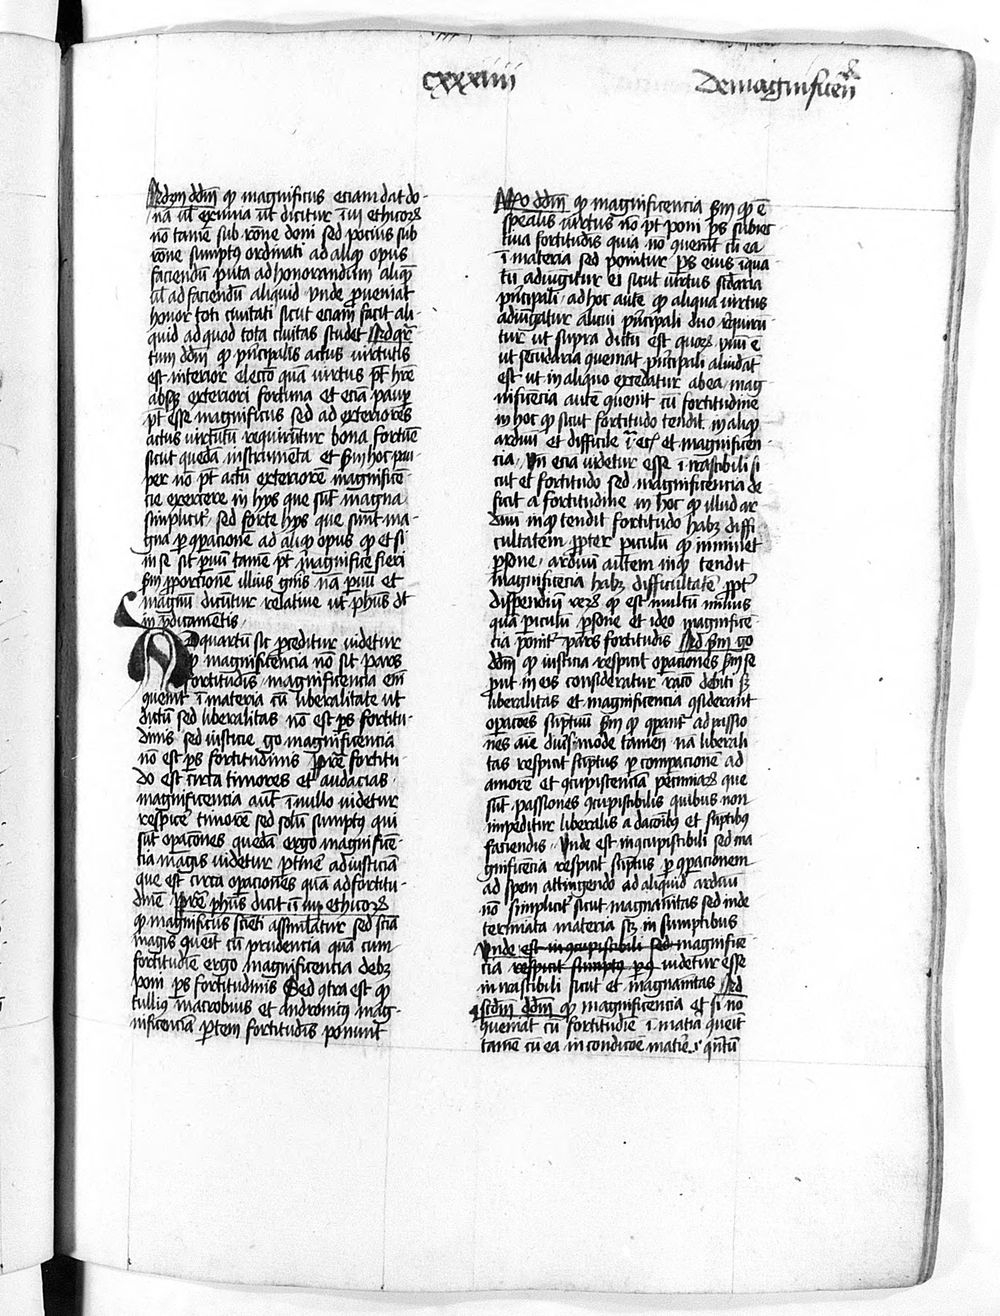 cxxxiiii
De magnificen
Ad 3m ddm qp magnificus eciam dat do-
na ul exenia ut dicitur i iiij ethicorz
no tame sub rone doni sed pocius sub
rone sumptq ordinati ad aliqp opus
faciendu puta ad honorandum aliqz
ul ad faciendu aliquid vnde proueniat
honor toti ciuitati sicut eciam facit ali-
quid ad quod tota ciuitas studet Ad qr
tum ddm qp principalis actus virtutis
est interior eleccio qua virtus pt hre
absqz exteriori fortuna et ecia paup
pt esse magnificus sed ad exteriores
actus virtutu requiruntur bona fortune
sicut queda instrumeta et scdm hoc pau-
per no pt actu exteriore magnifice-
cie exercere in hys que sut magna
simplicitr sed forte hys que sunt ma-
gna p qpacione ad aliqp opus qp et si
in se sit paruu tame pt magnifice fieri
scdm proporcione illius gnis na paruu et
magnu dicutur relatiue ut phus dt
in pdicametis
Ad quartu sic proceditur videtur
qp magnificencia no sit pars
fortitudis magnificencia eni
quenit i materia cu liberalitate ut
dictu sed liberalitas no est ps fortitu-
dinis sed iusticie go magnificencia
no est ps fortitudinis Pre fortitu-
do est circa timores et audacias
magnificencia aut i nullo videtur
respicere timore sed solu sumptq qui
sut opacones queda ergo magnifice-
cia magis videtur ptine ad iusticia
que est circa opaciones qua ad fortitu-
dine Pre phus dicit i iiij ethicorz
qp magnificus scieti assimilatur sed scia
magis queit cu prudencia qua cum
fortitudie ergo magnificencia debz
poni ps fortitudinis Sed qtra est qp
tullius macrobius et andronicus mag-
nificencia partem fortitudis ponunt
Rno ddm qp magnificencia scdm qp e
specialis virtus no pt poni ps subiec
tiua fortitudis quia no quenit cu ea
i materia sed ponitur ps eius iqua
tu adiugitur ei sicut virtus scdaria
principali ad hoc aute qp aliqua virtus
adiungatur alicui principali duo requiru
tur ut supra dictu est quorz vnu e
ut secudaria queniat principali aliud at
est ut in aliquo excedatur ab ea mag
nificencia aute quenit cu fortitudine
in hoc qp sicut fortitudo tendit in aliqp
ardui et difficile ita ecia et magnificen-
cia vn ecia videtur esse i irascibili si
cut et fortitudo sed magnificencia de
ficit a fortitudine in hoc qp illud ar
duu in qp tendit fortitudo habz diffi
cultatem ppter piculu qp imminet
psone arduu autem in qp tendit
magnificecia habz difficultate ppt
dispendiu rerz qp est multu minus
qua piculu psone et ideo magnifice-
cia ponitr pars fortitudis Ad scdm go
ddm qp iusticia respicit opaciones scdm se
put in eis consideratur racio debiti sz
liberalitas et magnificencia qsiderant
opacoes suptuu scdm qp qpantr ad passio
nes aie diuersimode tamen na liberali
tas respicit suptus p compacione ad
amore et qcupiscencia pecuniarz que
sut passiones qcupiscibilis quibus non
impeditur liberalis a dacoibq et suptibq
faciendis vnde est in qcupiscibili sed ma
gnificencia respicit suptus p qpacionem
ad spem attingendo ad aliquid arduu
no simplicitr sicut magnanitas sed in de
terminata materia scz in sumptibus
vnde est in qcupiscibili sed magnifice
cia respicit sumptq p qp videtur esse
in irascibili sicut et magnanitas Ad
scdm ddm qp magnificencia et si no
queniat cu fortitudie i matia queit
tame cu ea in condicoe matie i qntu